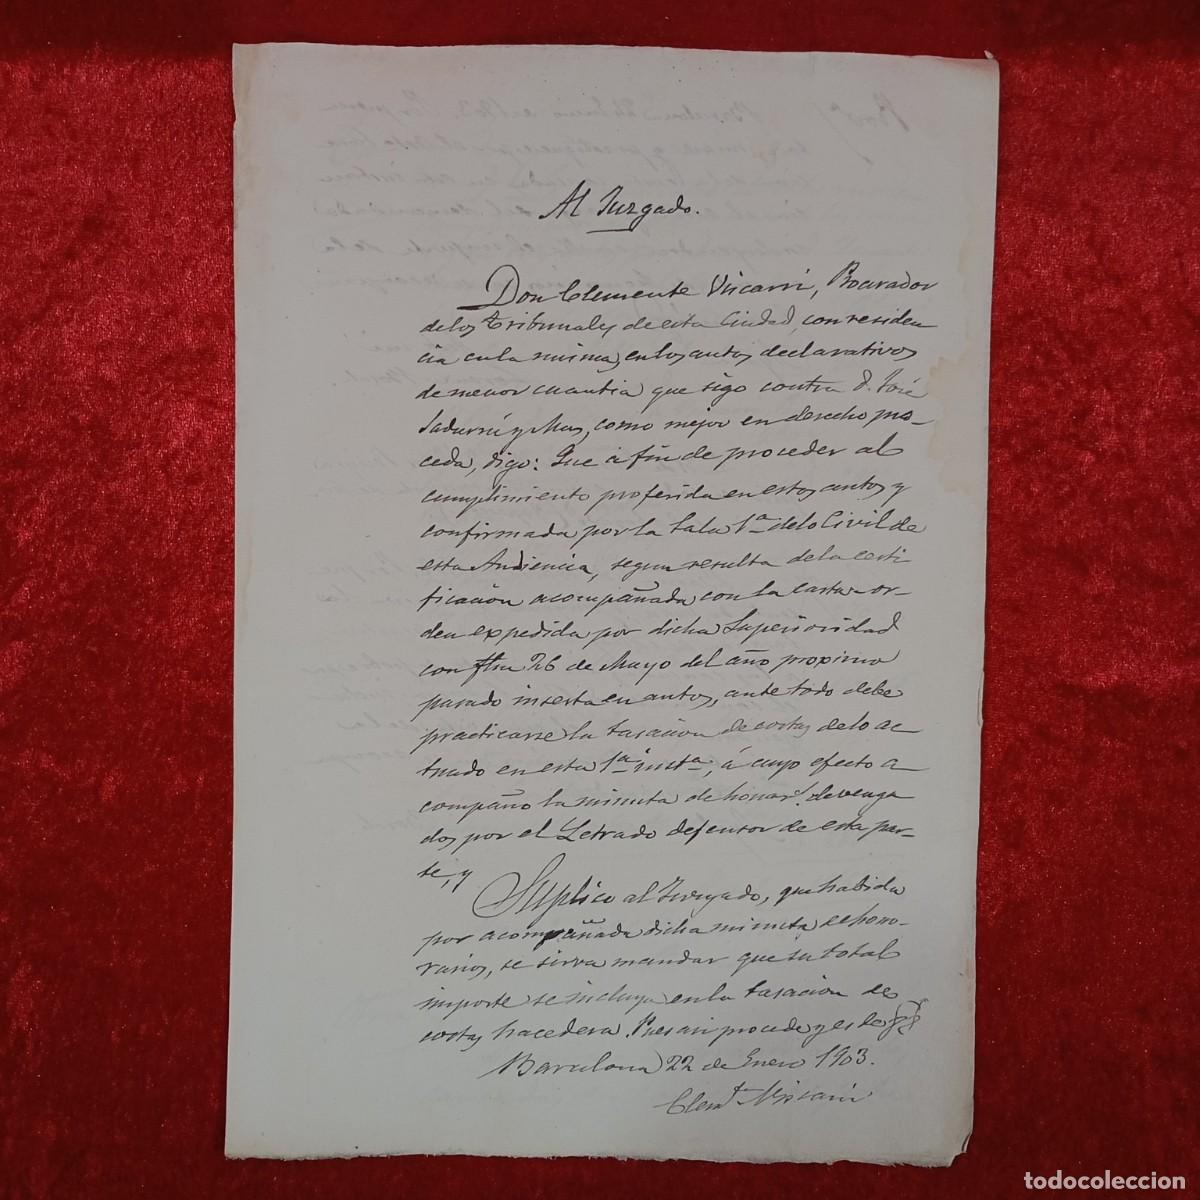 Al Juzgado.
Don Clemente Viscarri, Procurador
de los Tribunales de esta Ciudad, con residen
cia en la misma, en los autos declarativos
de menor cuantia que sigo contra D. José
Sadurní y Mas, como mejor en derecho pro-
ceda, digo: Que á fin de proceder al
cumplimiento proferida en estos autos y
confirmada por la Sala 1ª de lo Civil de
esta Audiencia, segun resulta de la certi
ficación acompañada con la carta-or-
den expedida por dicha Superioridad
con fha 26 de Mayo del año proximo
pasado inserta en autos, ante todo debe
practicarse la tasación de costas de lo ac-
tuado en esta 1ª insta, á cuyo efecto a-
compaño la minuta de honors. devenga
dos por el Letrado defensor de esta par-
te, y
Suplico al Juzgado, que habida
por acompañada dicha minuta de hono-
rarios, se sirva mandar que su total
importe se incluya en la tasación de
costas hacedera. Pues asi procede y es de
Barcelona 22 de Enero 1903.
Clemte Viscarri
todocoleccion